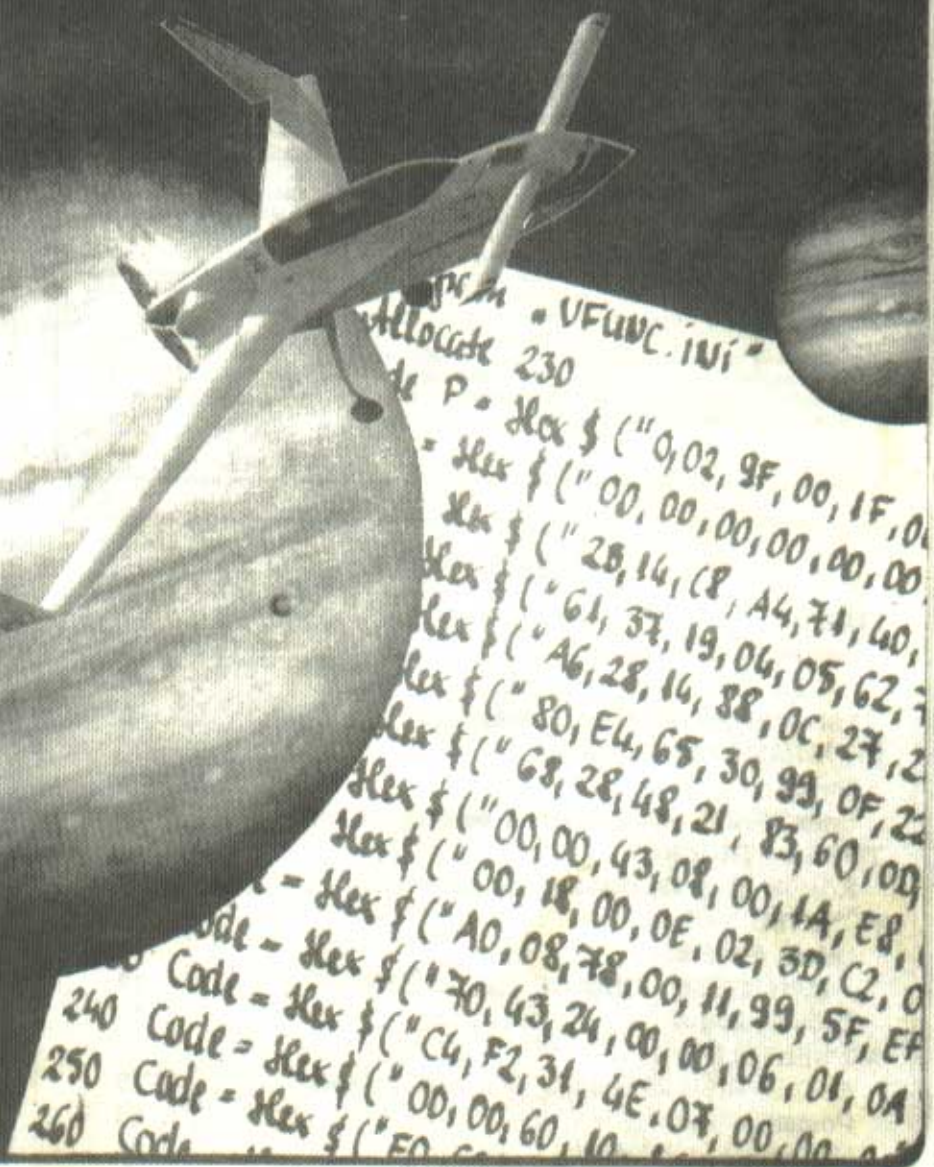 "VFUNC.iNi"
Allocate 230
P = Hex $ ("0,02,9F,00,1F,
= Hex $ ("00,00,00,00,00,00
Hex $ ("2B,14,C8,A4,71,40,
Hex $ ("61,37,19,04,05,62,
Hex $ ("A6,28,14,88,0C,27,
Hex $ ("80,E4,65,30,99,0F,22
Hex $ ("68,28,48,21,83,60,0D,
Hex $ ("00,00,43,08,00,1A,E8,
Hex $ ("00,18,00,0E,02,3D,C2,
= Hex $ ("A0,08,78,00,11,99,5F,EF
= Hex $ ("70,43,24,00,00,06,01,0A
Code = Hex $ ("C4,F2,31,4E,07,00,00,
240 Code = Hex $ ("00,00,60,10,
250 Code = Hex $ ("E0,
260 Code